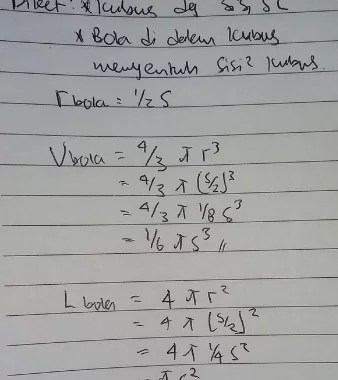 Diket : * kubus dg
* Bola di dalam kubus
menyentuh sisi² kubus.
r bola = 1/2 S
V bola = 4/3 π r³
= 4/3 π (s/2)³
= 4/3 π 1/8 s³
= 1/6 π s³ //
L bola = 4 π r²
= 4 π (s/2)²
= 4 π 1/4 s²
= π s²